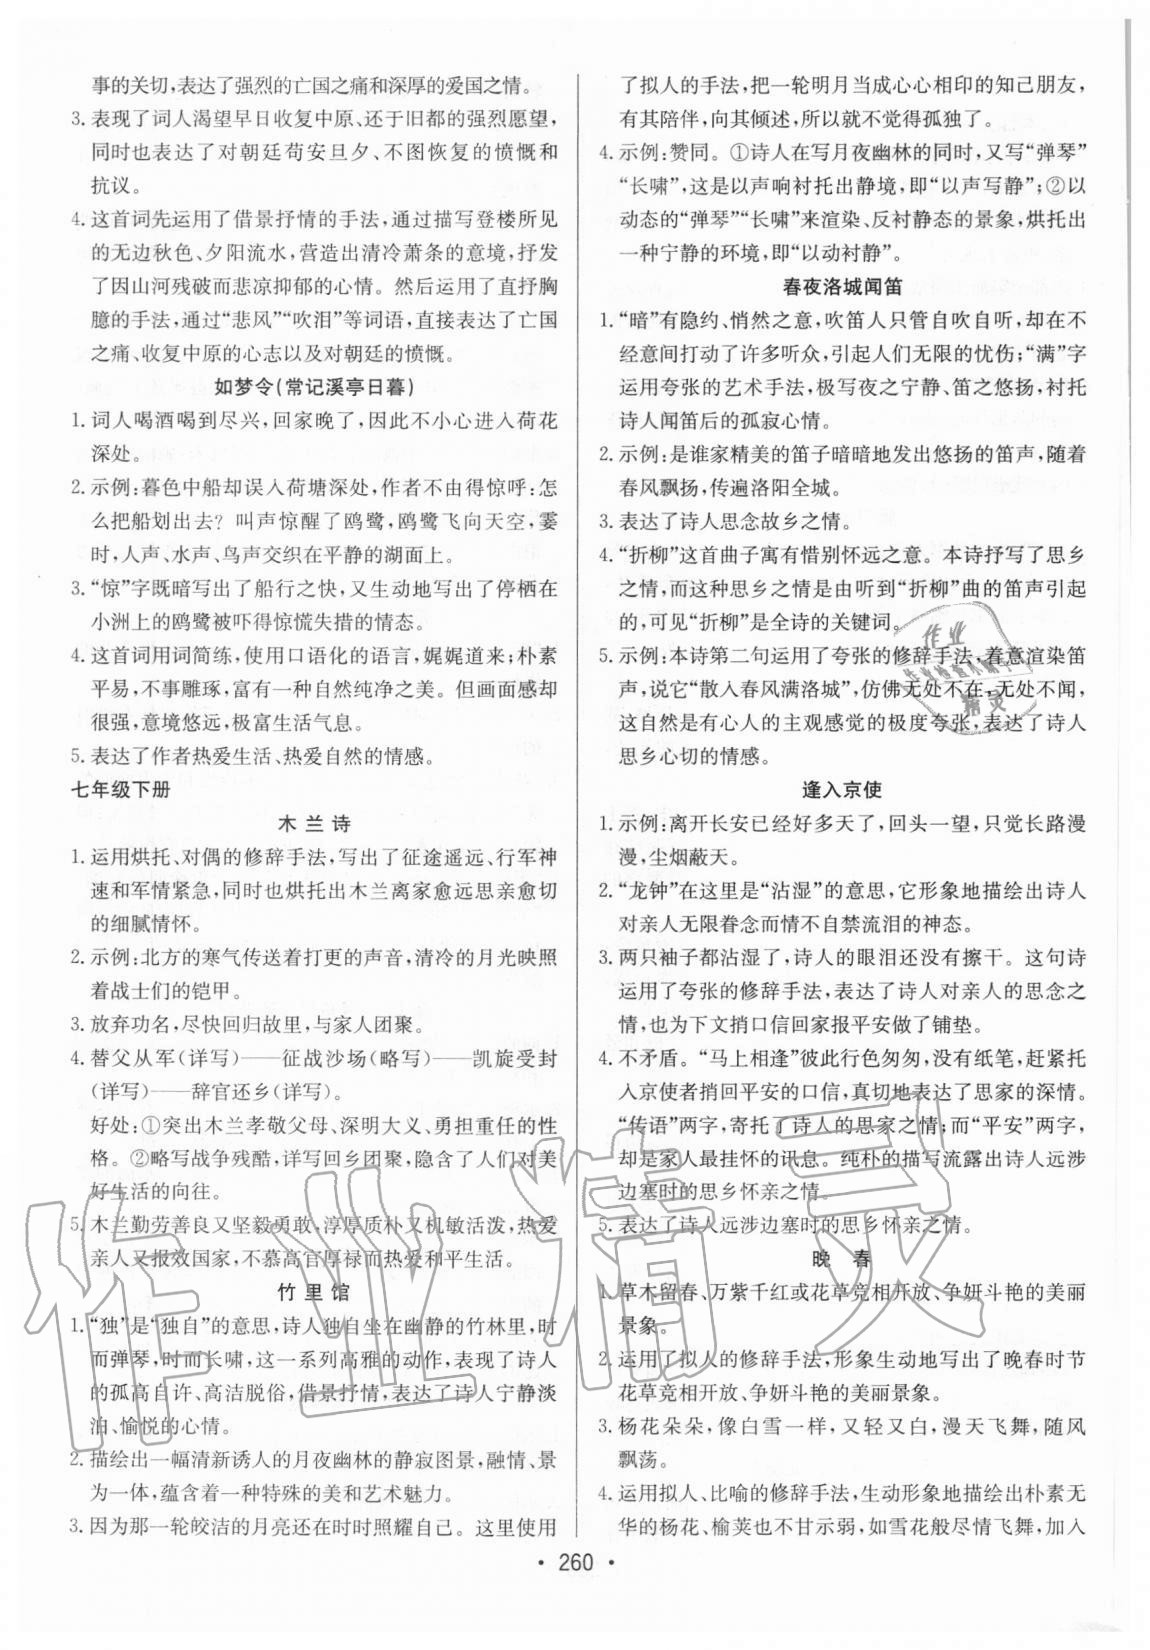 事的关切,表达了强烈的亡国之痛和深厚的爱国之情。
3. 表现了词人渴望早日收复中原、还于旧都的强烈愿望,
同时也表达了对朝廷苟安旦夕、不图恢复的愤慨和
抗议。
4. 这首词先运用了借景抒情的手法,通过描写登楼所见
的无边秋色、夕阳流水,营造出清冷萧条的意境,抒发
了因山河残破而悲凉抑郁的心情。然后运用了直抒胸
臆的手法,通过“悲风”“吹泪”等词语,直接表达了亡国
之痛、收复中原的心志以及对朝廷的愤慨。
如梦令(常记溪亭日暮)
1. 词人喝酒喝到尽兴,回家晚了,因此不小心进入荷花
深处。
2. 示例:暮色中船却误入荷塘深处,作者不由得惊呼:怎
么把船划出去? 叫声惊醒了鸥鹭,鸥鹭飞向天空,霎
时,人声、水声、鸟声交织在平静的湖面上。
3. “惊”字既暗写出了船行之快,又生动地写出了停栖在
小洲上的鸥鹭被吓得惊慌失措的情态。
4. 这首词用词简练,使用口语化的语言,娓娓道来;朴素
平易,不事雕琢,富有一种自然纯净之美。但画面感却
很强,意境悠远,极富生活气息。
5. 表达了作者热爱生活、热爱自然的情感。
七年级下册
木兰诗
1. 运用烘托、对偶的修辞手法,写出了征途遥远、行军神
速和军情紧急,同时也烘托出木兰离家愈远思亲愈切
的细腻情怀。
2. 示例:北方的寒气传送着打更的声音,清冷的月光映照
着战士们的铠甲。
3. 放弃功名,尽快回归故里,与家人团聚。
4. 替父从军(详写)——征战沙场(略写)——凯旋受封
(详写)——辞官还乡(详写)。
好处:①突出木兰孝敬父母、深明大义、勇担重任的性
格。②略写战争残酷,详写回乡团聚,隐含了人们对美
好生活的向往。
5. 木兰勤劳善良又坚毅勇敢,淳厚质朴又机敏活泼,热爱
亲人又报效国家,不慕高官厚禄而热爱和平生活。
竹里馆
1. “独”是“独自”的意思,诗人独自坐在幽静的竹林里,时
而弹琴,时而长啸,这一系列高雅的动作,表现了诗人
的孤高自许、高洁脱俗,借景抒情,表达了诗人宁静淡
泊、愉悦的心情。
2. 描绘出一幅清新诱人的月夜幽林的静寂图景,融情、景
为一体,蕴含着一种特殊的美和艺术魅力。
3. 因为那一轮皎洁的月亮还在时时照耀自己。这里使用
了拟人的手法,把一轮明月当成心心相印的知己朋友,
有其陪伴,向其倾述,所以就不觉得孤独了。
4. 示例:赞同。①诗人在写月夜幽林的同时,又写“弹琴”
“长啸”,这是以声响衬托出静境,即“以声写静”;②以
动态的“弹琴”“长啸”来渲染、反衬静态的景象,烘托出
一种宁静的环境,即“以动衬静”。
春夜洛城闻笛
1. “暗”有隐约、悄然之意,吹笛人只管自吹自听,却在不
经意间打动了许多听众,引起人们无限的忧伤;“满”字
运用夸张的艺术手法,极写夜之宁静、笛之悠扬,衬托
诗人闻笛后的孤寂心情。
2. 示例:是谁家精美的笛子暗暗地发出悠扬的笛声,随着
春风飘扬,传遍洛阳全城。
3. 表达了诗人思念故乡之情。
4. “折柳”这首曲子寓有惜别怀远之意。本诗抒写了思乡
之情,而这种思乡之情是由听到“折柳”曲的笛声引起
的,可见“折柳”是全诗的关键词。
5. 示例:本诗第二句运用了夸张的修辞手法,着意渲染笛
声,说它“散入春风满洛城”,仿佛无处不在,无处不闻,
这自然是有心人的主观感觉的极度夸张,表达了诗人
思乡心切的情感。
逢入京使
1. 示例:离开长安已经好多天了,回头一望,只觉长路漫
漫,尘烟蔽天。
2. “龙钟”在这里是“沾湿”的意思,它形象地描绘出诗人
对亲人无限眷念而情不自禁流泪的神态。
3. 两只袖子都沾湿了,诗人的眼泪还没有擦干。这句诗
运用了夸张的修辞手法,表达了诗人对亲人的思念之
情,也为下文捎口信回家报平安做了铺垫。
4. 不矛盾。“马上相逢”彼此行色匆匆,没有纸笔,赶紧托
入京使者捎回平安的口信,真切地表达了思家的深情。
“传语”两字,寄托了诗人的思家之情;而“平安”两字,
却是家人最挂怀的讯息。纯朴的描写流露出诗人远涉
边塞时的思乡怀亲之情。
5. 表达了诗人远涉边塞时的思乡怀亲之情。
晚 春
1. 草木留春、万紫千红或花草竞相开放、争妍斗艳的美丽
景象。
2. 运用了拟人的修辞手法,形象生动地写出了晚春时节
花草竞相开放、争妍斗艳的美丽景象。
3. 杨花朵朵,像白雪一样,又轻又白,漫天飞舞,随风
飘荡。
4. 运用拟人、比喻的修辞手法,生动形象地描绘出朴素无
华的杨花、榆荚也不甘示弱,如雪花般尽情飞舞,加入
· 260 ·
作业精灵
作业
精灵